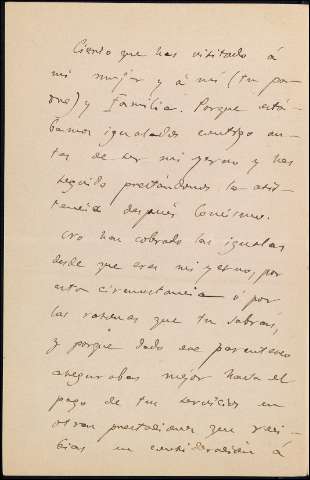 Cierto que has visitado á
mi mujer y á mí (tu pa-
dre) y familia. Porque está-
bamos igualados contigo an-
tes de ser mi yerno y has
seguido prestándonos la asis-
tencia después lo mismo.
No han cobrado las igualas
desde que eras mi yerno, por
esta circunstancia ó por
las razones que tu sabrás,
y porque dado ese parentesco
asegurabas mejor hasta el
pago de tus servicios en
otras prestaciones que reci-
bías en consideración á